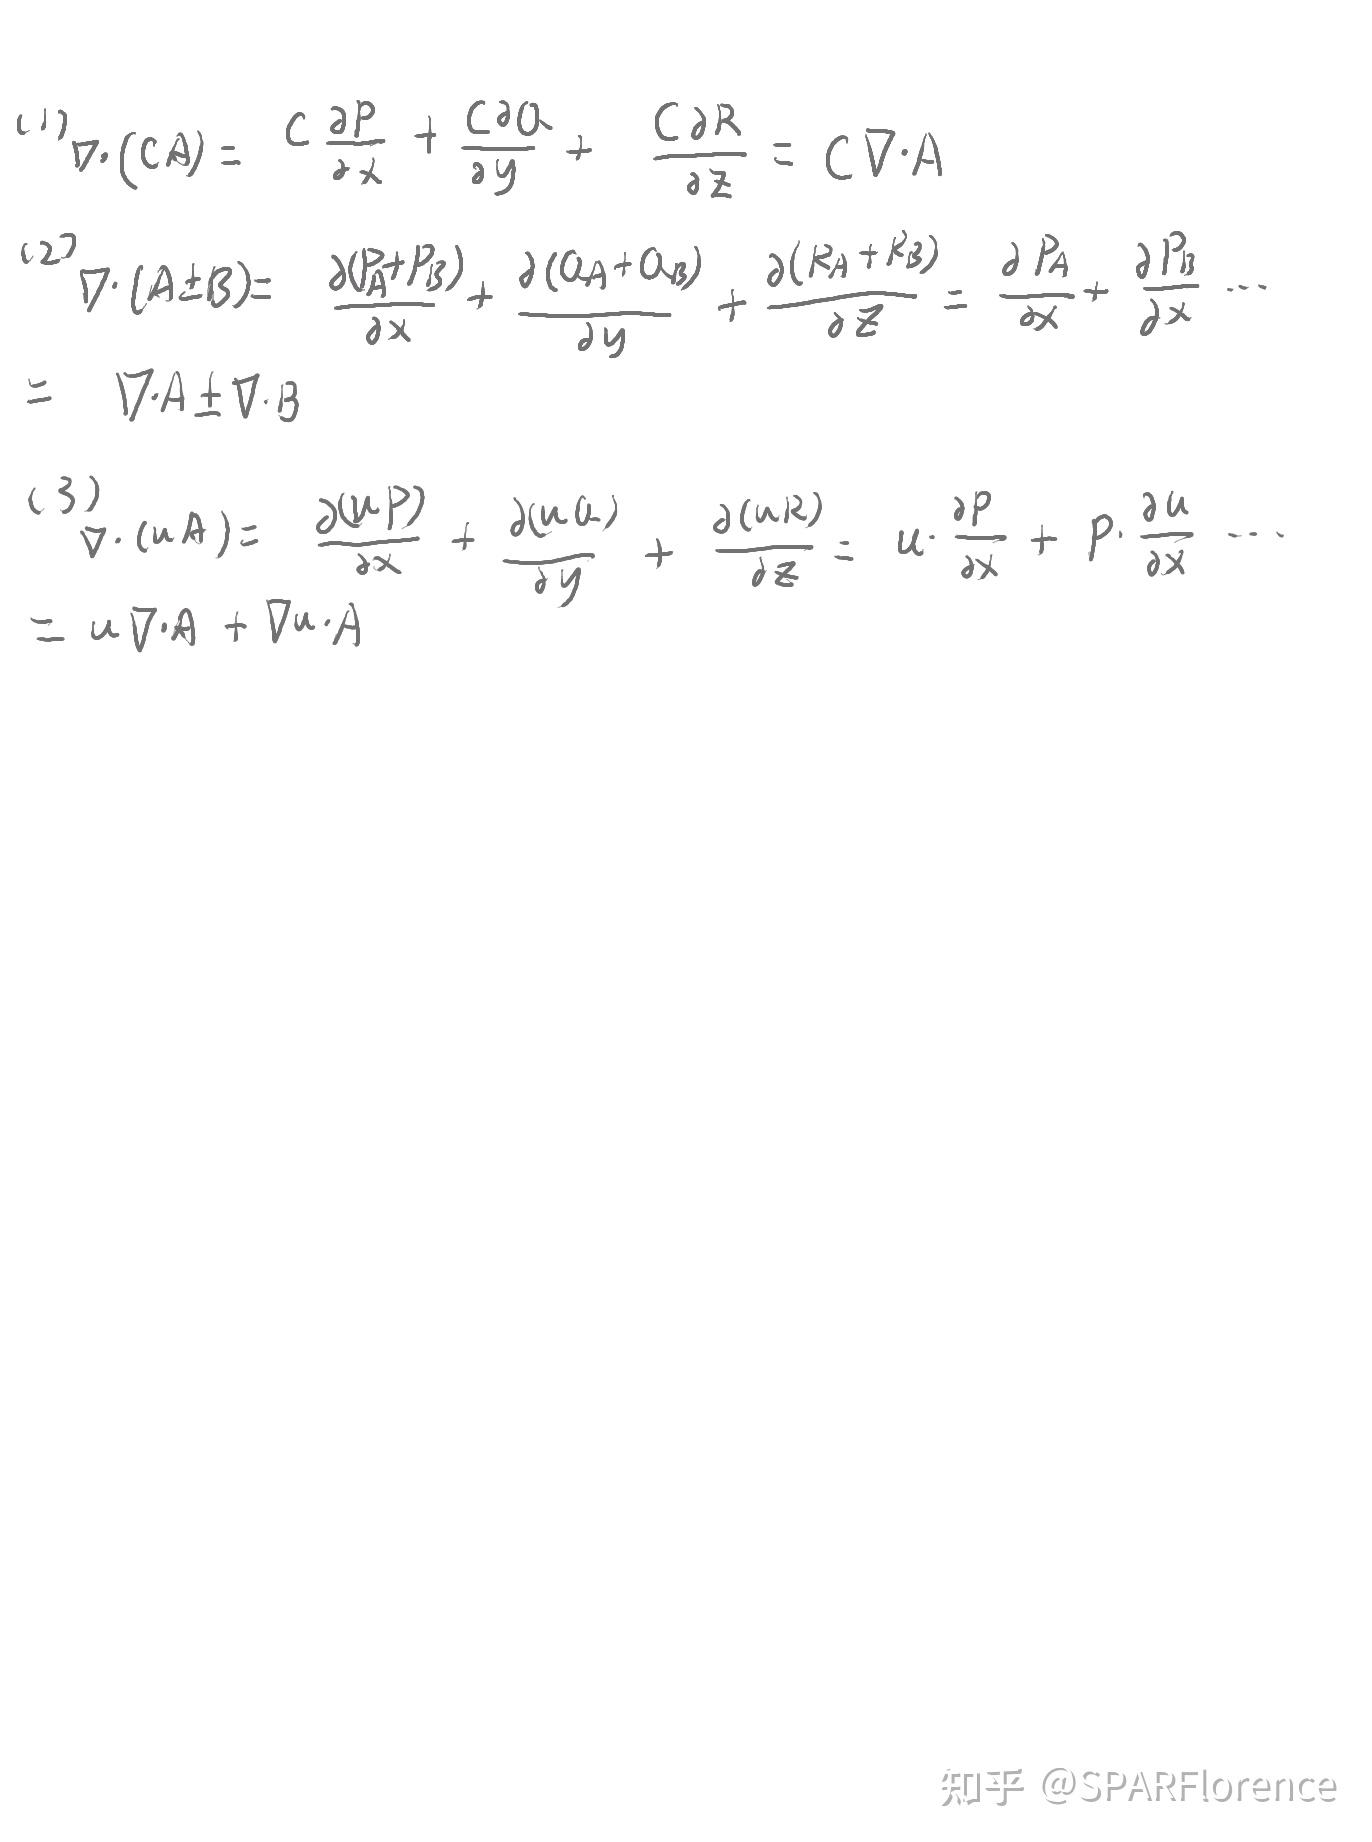 (1) ∇·(CA) = C ∂P/∂x + C∂Q/∂y + C∂R/∂z = C∇·A
(2) ∇·(A±B) = ∂(P_A+P_B)/∂x + ∂(Q_A+Q_B)/∂y + ∂(R_A+R_B)/∂z = ∂P_A/∂x + ∂P_B/∂x ...
= ∇·A ± ∇·B
(3) ∇·(uA) = ∂(uP)/∂x + ∂(uQ)/∂y + ∂(uR)/∂z = u·∂P/∂x + P·∂u/∂x ...
= u∇·A + ∇u·A
知乎 @SPARFlorence